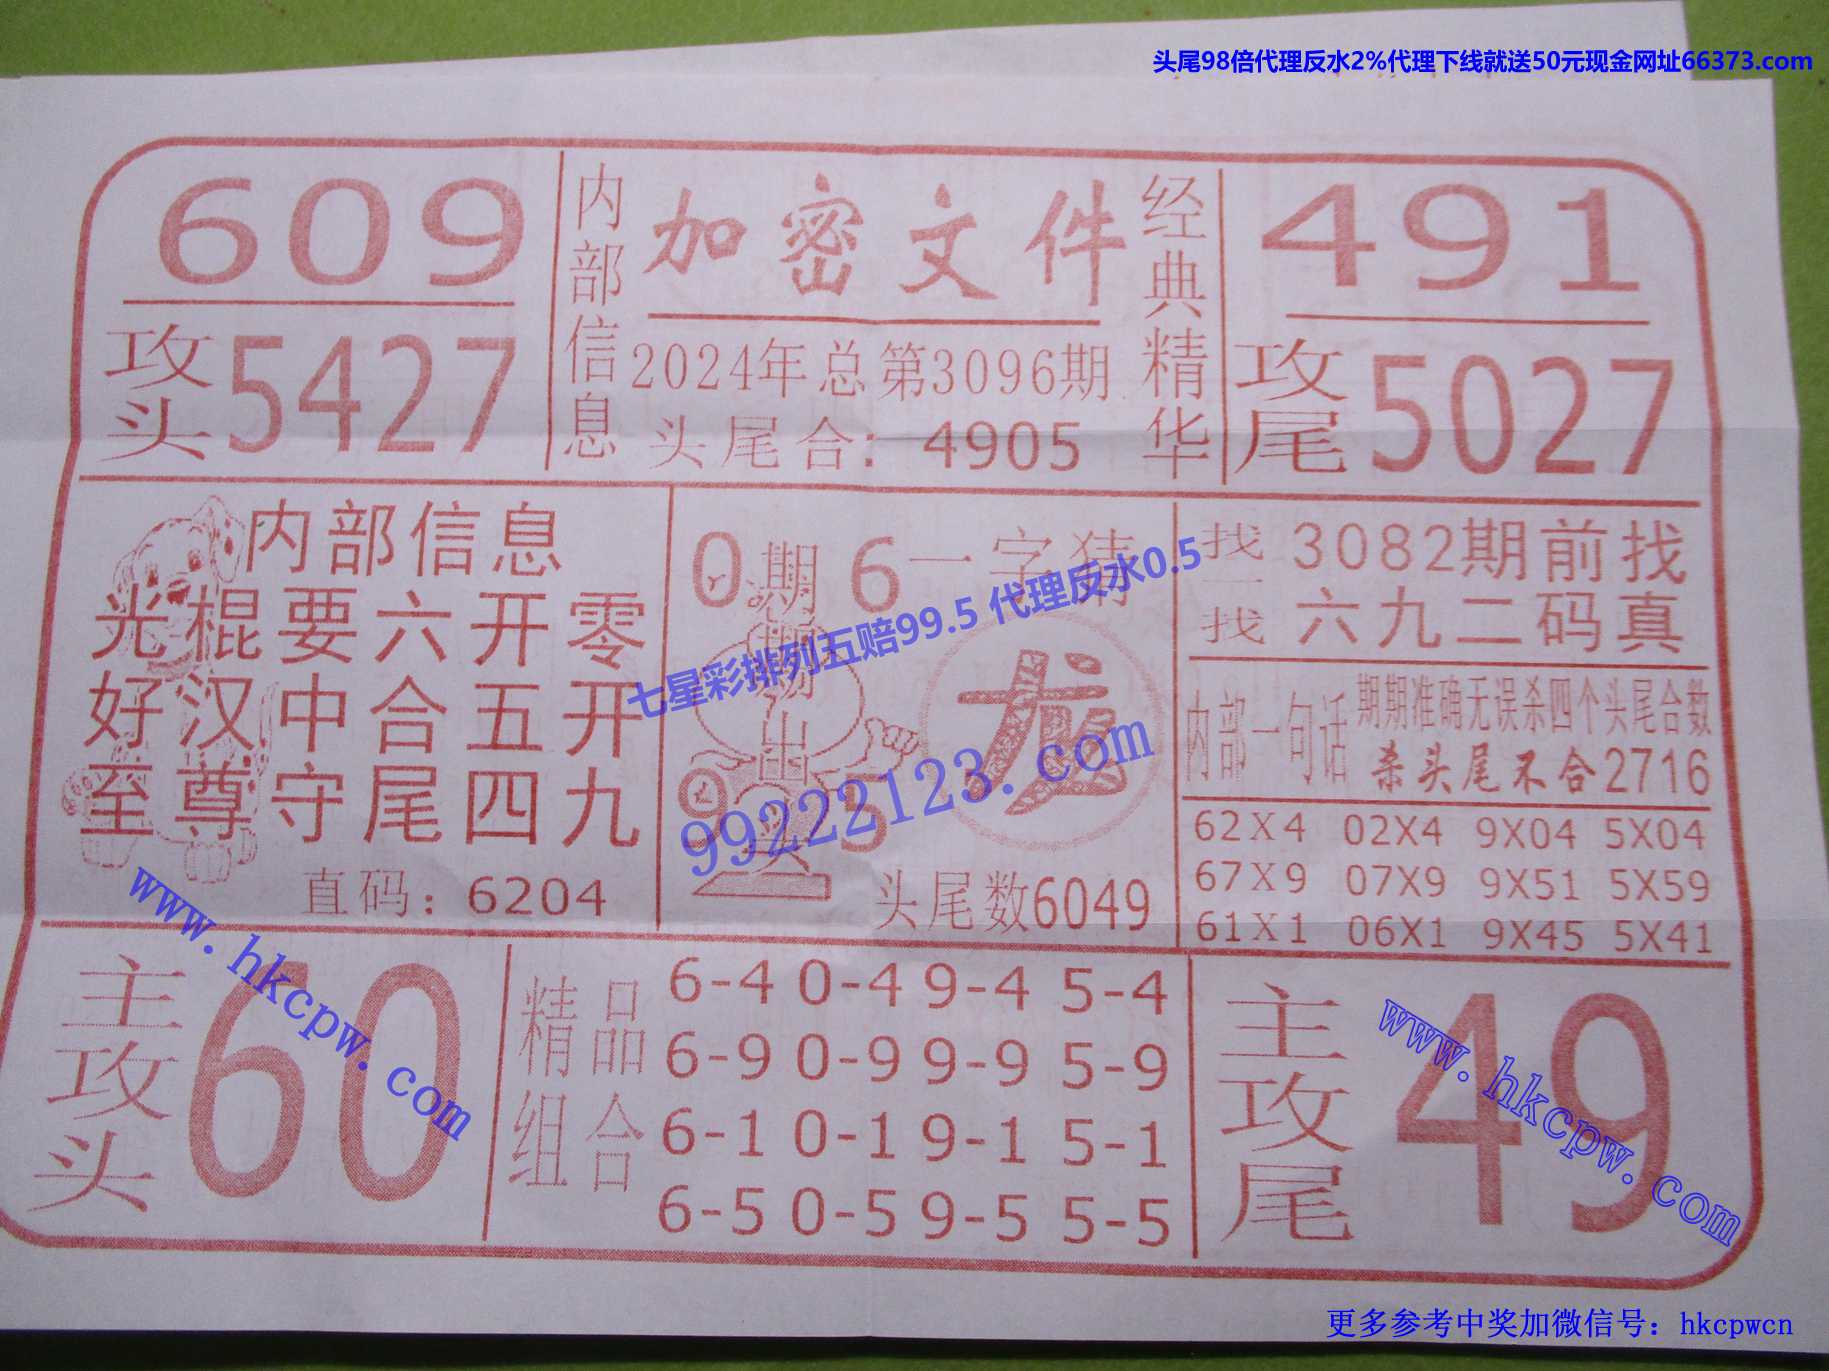 头尾98倍代理反水2%代理下线就送50元现金网址66373.com
609
攻头5427
内部信息
加密文件
2024年总第3096期
头尾合：4905
经典精华
491
攻尾5027
内部信息
光棍要六开零
好汉中合五开
至尊守尾四九
直码：6204
0 6
期期出
9 5
一字猜
龙
头尾数6049
七星彩排列五赔99.5 代理反水0.5
99222123.com
找一找
3082期前找
六九二码真
内部一句话
期期准确无误杀四个头尾合数
杀头尾不合2716
62X4 02X4 9X04 5X04
67X9 07X9 9X51 5X59
61X1 06X1 9X45 5X41
主攻头60
www.hkcpw.com
精品组合
6-4 0-4 9-4 5-4
6-9 0-9 9-9 5-9
6-1 0-1 9-1 5-1
6-5 0-5 9-5 5-5
主攻尾49
www.hkcpw.com
更多参考中奖加微信号：hkcpwcn